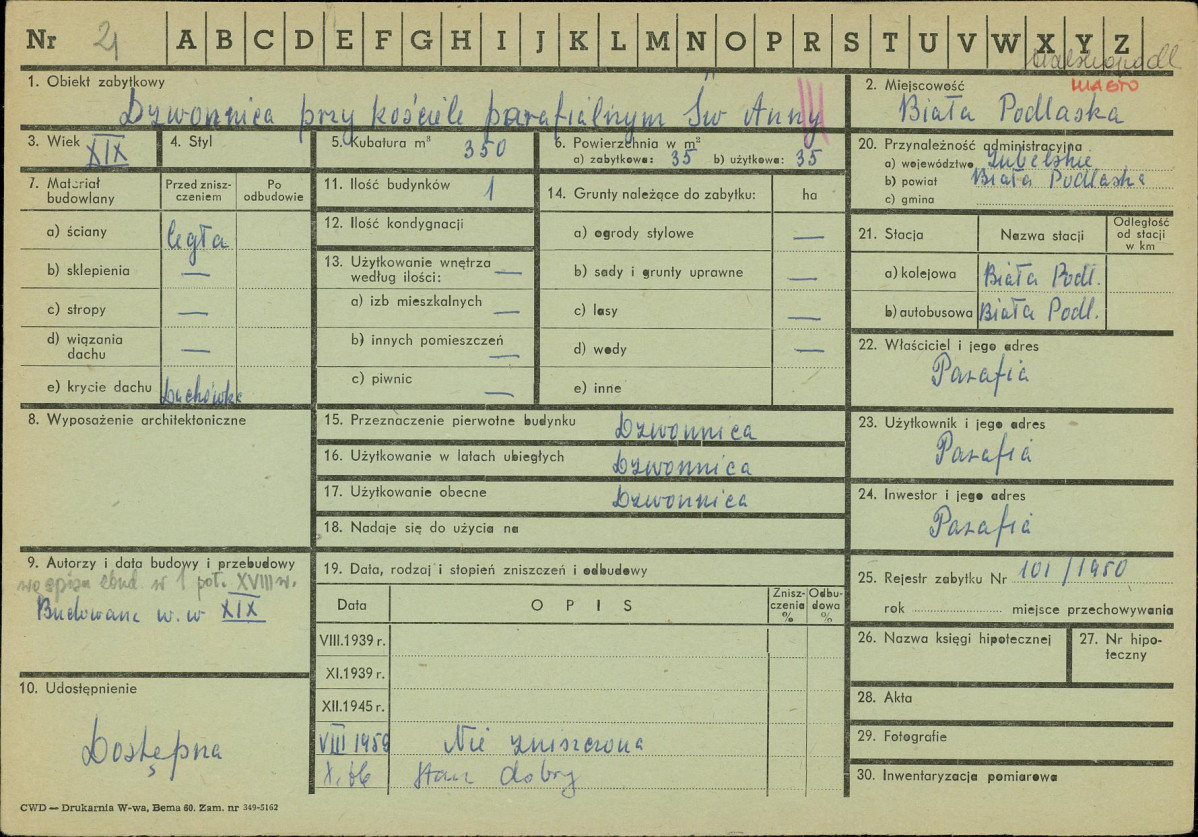 Nr 21 A B C D E F G H I J K L M N O P R S T U V W X Y Z
1. Obiekt zabytkowy
Dzwonnica przy kościele parafialnym Św Anny
2. Miejscowość MIASTO
Biała Podlaska
3. Wiek XIX
4. Styl
5. Kubatura m³ 350
6. Powierzchnia w m²
a) zabytkowa: 35 b) użytkowa: 35
20. Przynależność administracyjna
a) województwo Lubelskie
b) powiat Biała Podlaska
c) gmina
7. Materiał budowlany
Przed zniszczeniem
Po odbudowie
a) ściany cegła
b) sklepienia —
c) stropy —
d) wiązania dachu —
e) krycie dachu Dachówka
11. Ilość budynków 1
12. Ilość kondygnacji
13. Użytkowanie wnętrza według ilości: —
a) izb mieszkalnych —
b) innych pomieszczeń —
c) piwnic —
14. Grunty należące do zabytku: ha
a) ogrody stylowe —
b) sady i grunty uprawne —
c) lasy —
d) wody —
e) inne
21. Stacja
Nazwa stacji
Odległość od stacji w km
a) kolejowa Biała Podl.
b) autobusowa Biała Podl.
22. Właściciel i jego adres
Parafia
8. Wyposażenie architektoniczne
15. Przeznaczenie pierwotne budynku Dzwonnica
16. Użytkowanie w latach ubiegłych Dzwonnica
17. Użytkowanie obecne Dzwonnica
18. Nadaje się do użycia na
23. Użytkownik i jego adres
Parafia
24. Inwestor i jego adres
Parafia
9. Autorzy i data budowy i przebudowy
w 1 poł. XVIII w.
Budowana w. w XIX
10. Udostępnienie
Dostępna
19. Data, rodzaj i stopień zniszczeń i odbudowy
Data
OPIS
Zniszczenia %
Odbudowa %
VIII.1939 r.
XI.1939 r.
XII.1945 r.
VIII 1958 Nie zniszczona
X. 66 stan dobry
25. Rejestr zabytku Nr 101/1950
rok miejsce przechowywania
26. Nazwa księgi hipotecznej
27. Nr hipoteczny
28. Akta
29. Fotografie
30. Inwentaryzacja pomiarowa
CWD — Drukarnia W-wa, Bema 60. Zam. nr 349-5162